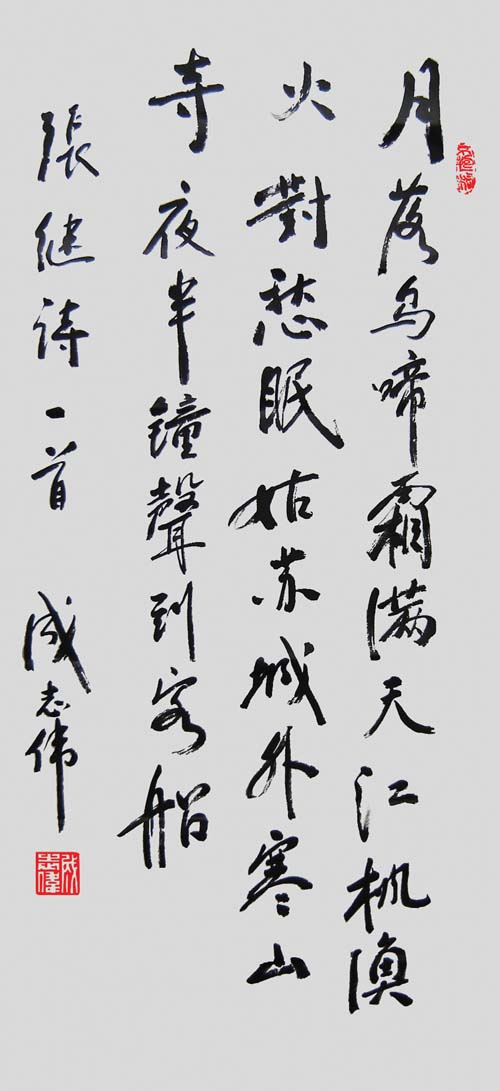 月落乌啼霜满天江枫渔
火對愁眠姑苏城外寒山
寺夜半鐘聲到客船
張继诗一首 成志伟